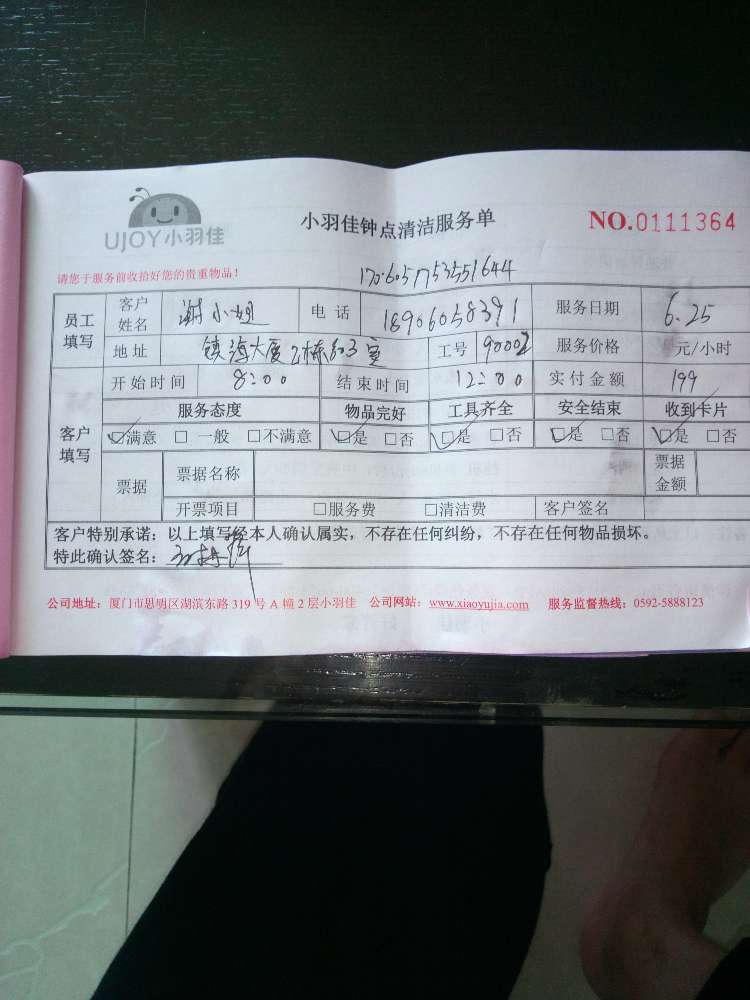 UJOY小羽佳
小羽佳钟点清洁服务单
NO.0111364
请您于服务前收拾好您的贵重物品！
员工填写 客户姓名 谢小姐 电话 18906058391 服务日期 6.25
地址 镇海大厦 室 工号 90002 服务价格 元/小时
客户填写 开始时间 8:00 结束时间 12:00 实付金额 199
服务态度 物品完好 工具齐全 安全结束 收到卡片
☑满意 □一般 □不满意 ☑是 □否 ☑是 □否 ☑是 □否 ☑是 □否
票据 票据名称 票据金额
开票项目 □服务费 □清洁费 客户签名
客户特别承诺：以上填写经本人确认属实，不存在任何纠纷，不存在任何物品损坏。
特此确认签名：
公司地址：厦门市思明区湖滨东路 319 号 A 幢 2 层小羽佳 公司网站：www.xiaoyujia.com 服务监督热线：0592-5888123